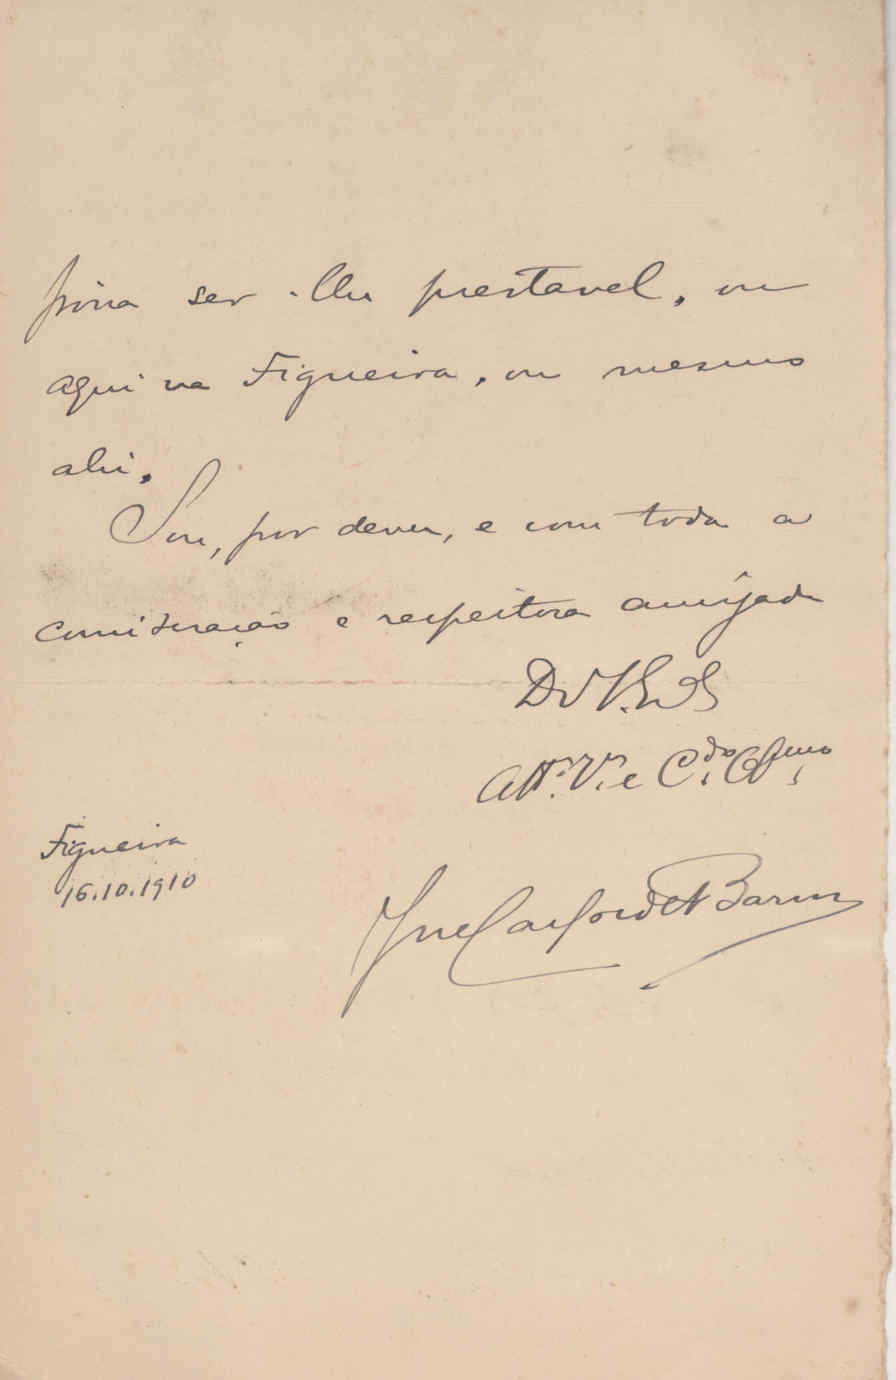 possa ser-lhe prestavel, ou
aqui na Figueira, ou mesmo
ahi.
Sou, por dever, e com toda a
consideração e respeitosa amizade
De V. Ex.
Att.º V.or e C.do Obgmo
Figueira
16.10.1910
José Cardoso Barros